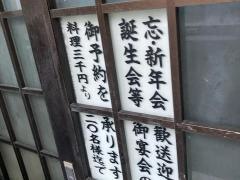 忘・新年会
誕生会等
御予約を
料理三千円より
歓送迎
御宴会の
承ります
二〇名様迄で